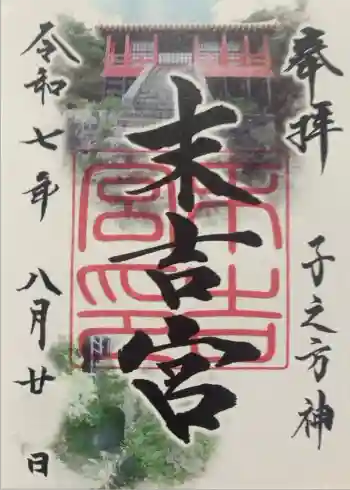 奉拝
子之方神
末吉宮
末吉宮印
令和七年 八月廿日